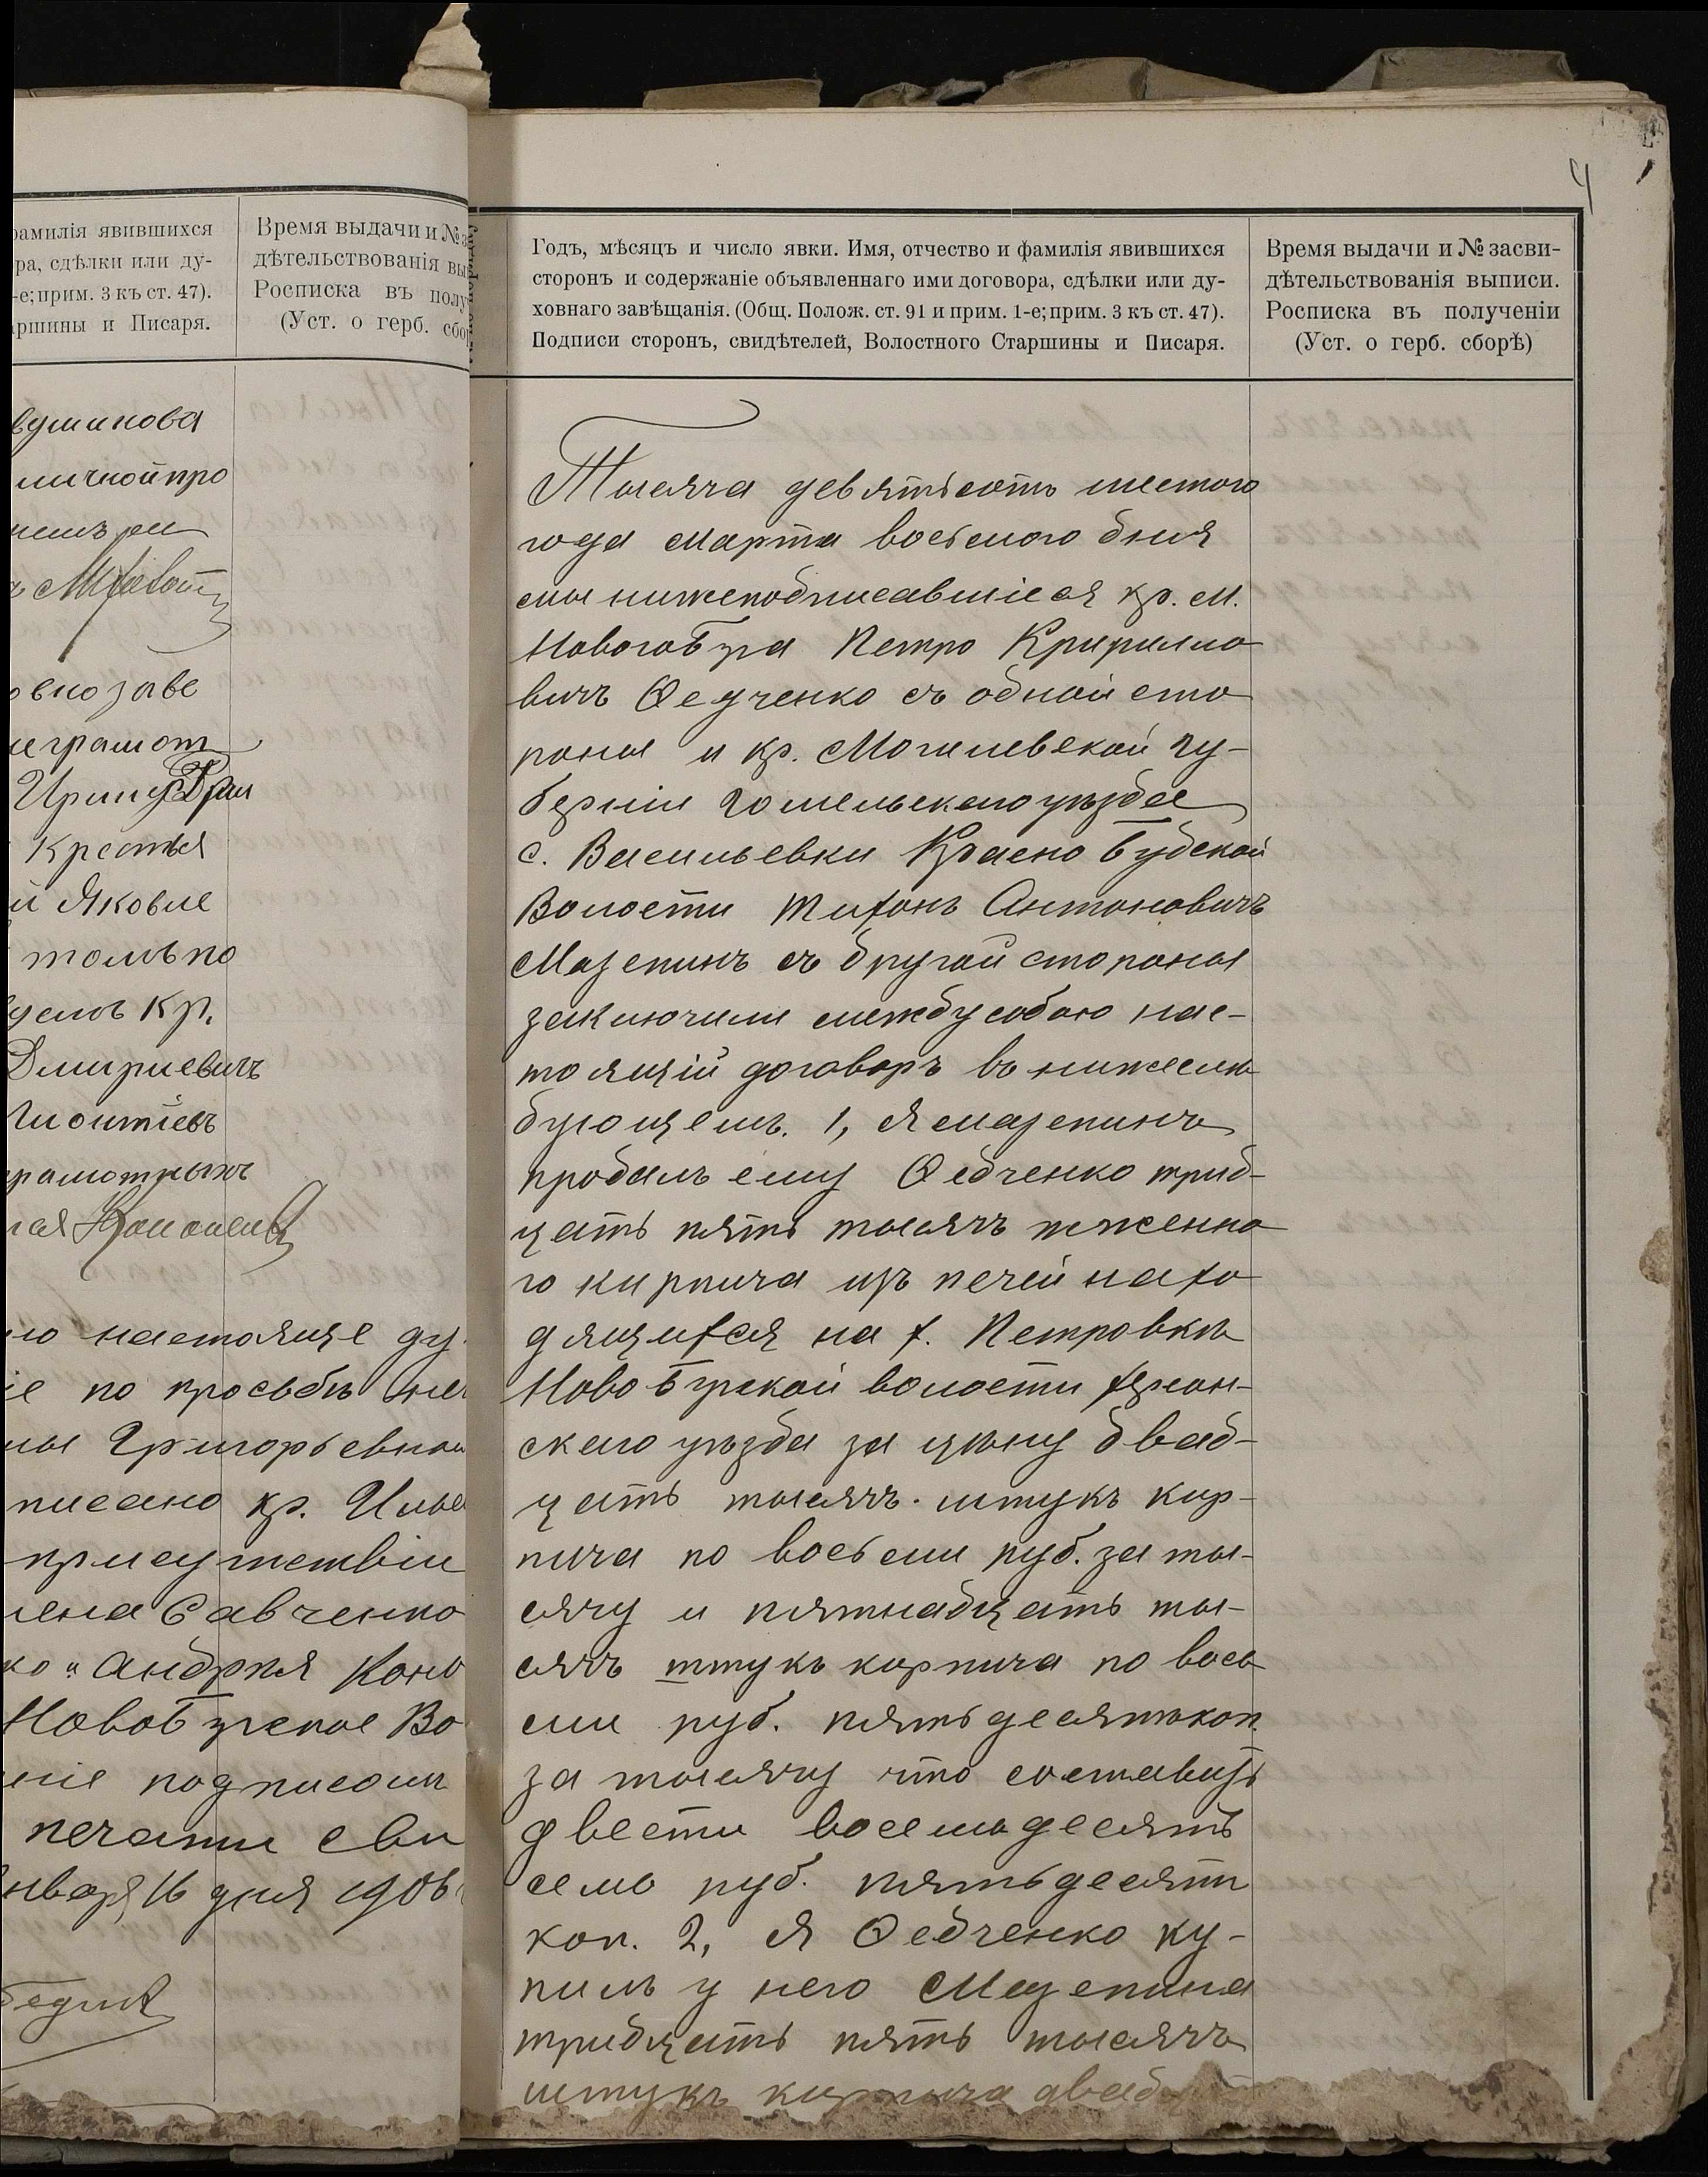 амилія явившихся
ра, сдѣлки или ду-
-е; прим. 3 къ ст. 47).
ршины и Писаря.
Время выдачи и №
дѣтельствованія вы
Росписка въ полу
(Уст. о герб. сбор
личной про
неграмот
Ирину
Крестья
й Яковле
только
кр.
Дмириевичъ
рамотныхъ
настояще ду
е по просьбѣ не
Григорьевной
писано кр. Илье
присутствіи
Савченко
ко и Андрея Коно
Новобугское Во
ніе подписом
печати сви
нваря 16 дня 1906
4
Годъ, мѣсяцъ и число явки. Имя, отчество и фамилія явившихся
сторонъ и содержаніе объявленнаго ими договора, сдѣлки или ду-
ховнаго завѣщанія. (Общ. Полож. ст. 91 и прим. 1-е; прим. 3 къ ст. 47).
Подписи сторонъ, свидѣтелей, Волостного Старшины и Писаря.
Время выдачи и № засви-
дѣтельствованія выписи.
Росписка въ полученіи
(Уст. о герб. сборѣ)
Тысяча девятьсотъ шестого
года Марта восьмого дня
мы нижеподписавшіеся кр. М.
Новогобуга Петро Кририло
вичъ Ѳедченко съ одной сто
роны и кр. Могилевской гу-
берніи Гомельскаго уѣзда
с. Васильевки Красно Будской
Волости Тихонъ Антоновичъ
Мазепинъ съ другой стороны
заключили между собою нас-
тоящій договоръ въ нижеслѣ
дующемъ. 1, Я мазепинъ
продалъ ему Ѳедченко трид-
цать пять тысячъ жженно
го кирпича изъ печей нахо
дящихся на х. Петровкѣ
Ново Бугской волости херсон-
скаго уѣзда за цѣну двад-
цать тысячъ. штукъ кир-
пича по восьми руб. за ты-
сячу и пятнадцать ты-
сячъ штукъ кирпича по вось
ми руб. пятьдесятъ коп.
за тысячу что составитъ
двести восемьдесятъ
семь руб. пятьдесятъ
коп. 2, Я Ѳедченко ку-
пилъ у него Мазепина
тридцать пять тысячъ
штукъ кирпича двад